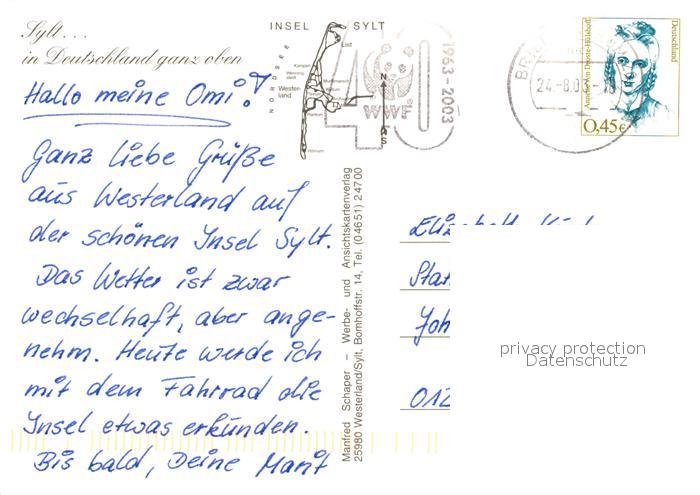 Sylt...
in Deutschland ganz oben
INSEL SYLT
NORDSEE
List
Kampen
Westerland
40
WWF
1963-2003
24.-8.03
Deutschland
0,45€
Hallo meine Omi!
Ganz liebe Grüße
aus Westerland auf
der schönen Insel Sylt.
Das Wetter ist zwar
wechselhaft, aber ange-
nehm. Heute werde ich
mit dem Fahrrad die
Insel etwas erkunden.
Bis bald, Deine
Manfred Schaper – Werbe- und Ansichtskartenverlag
25980 Westerland/Sylt, Bomhoffstr. 14, Tel. (04651) 24700
Joh
012
privacy protection
Datenschutz